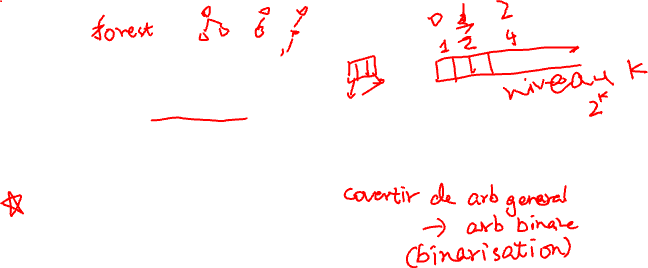 forest
0 1 2
1 2 4
niveau k
2^k
covertir de arb general
→ arb binaire
(binarisation)